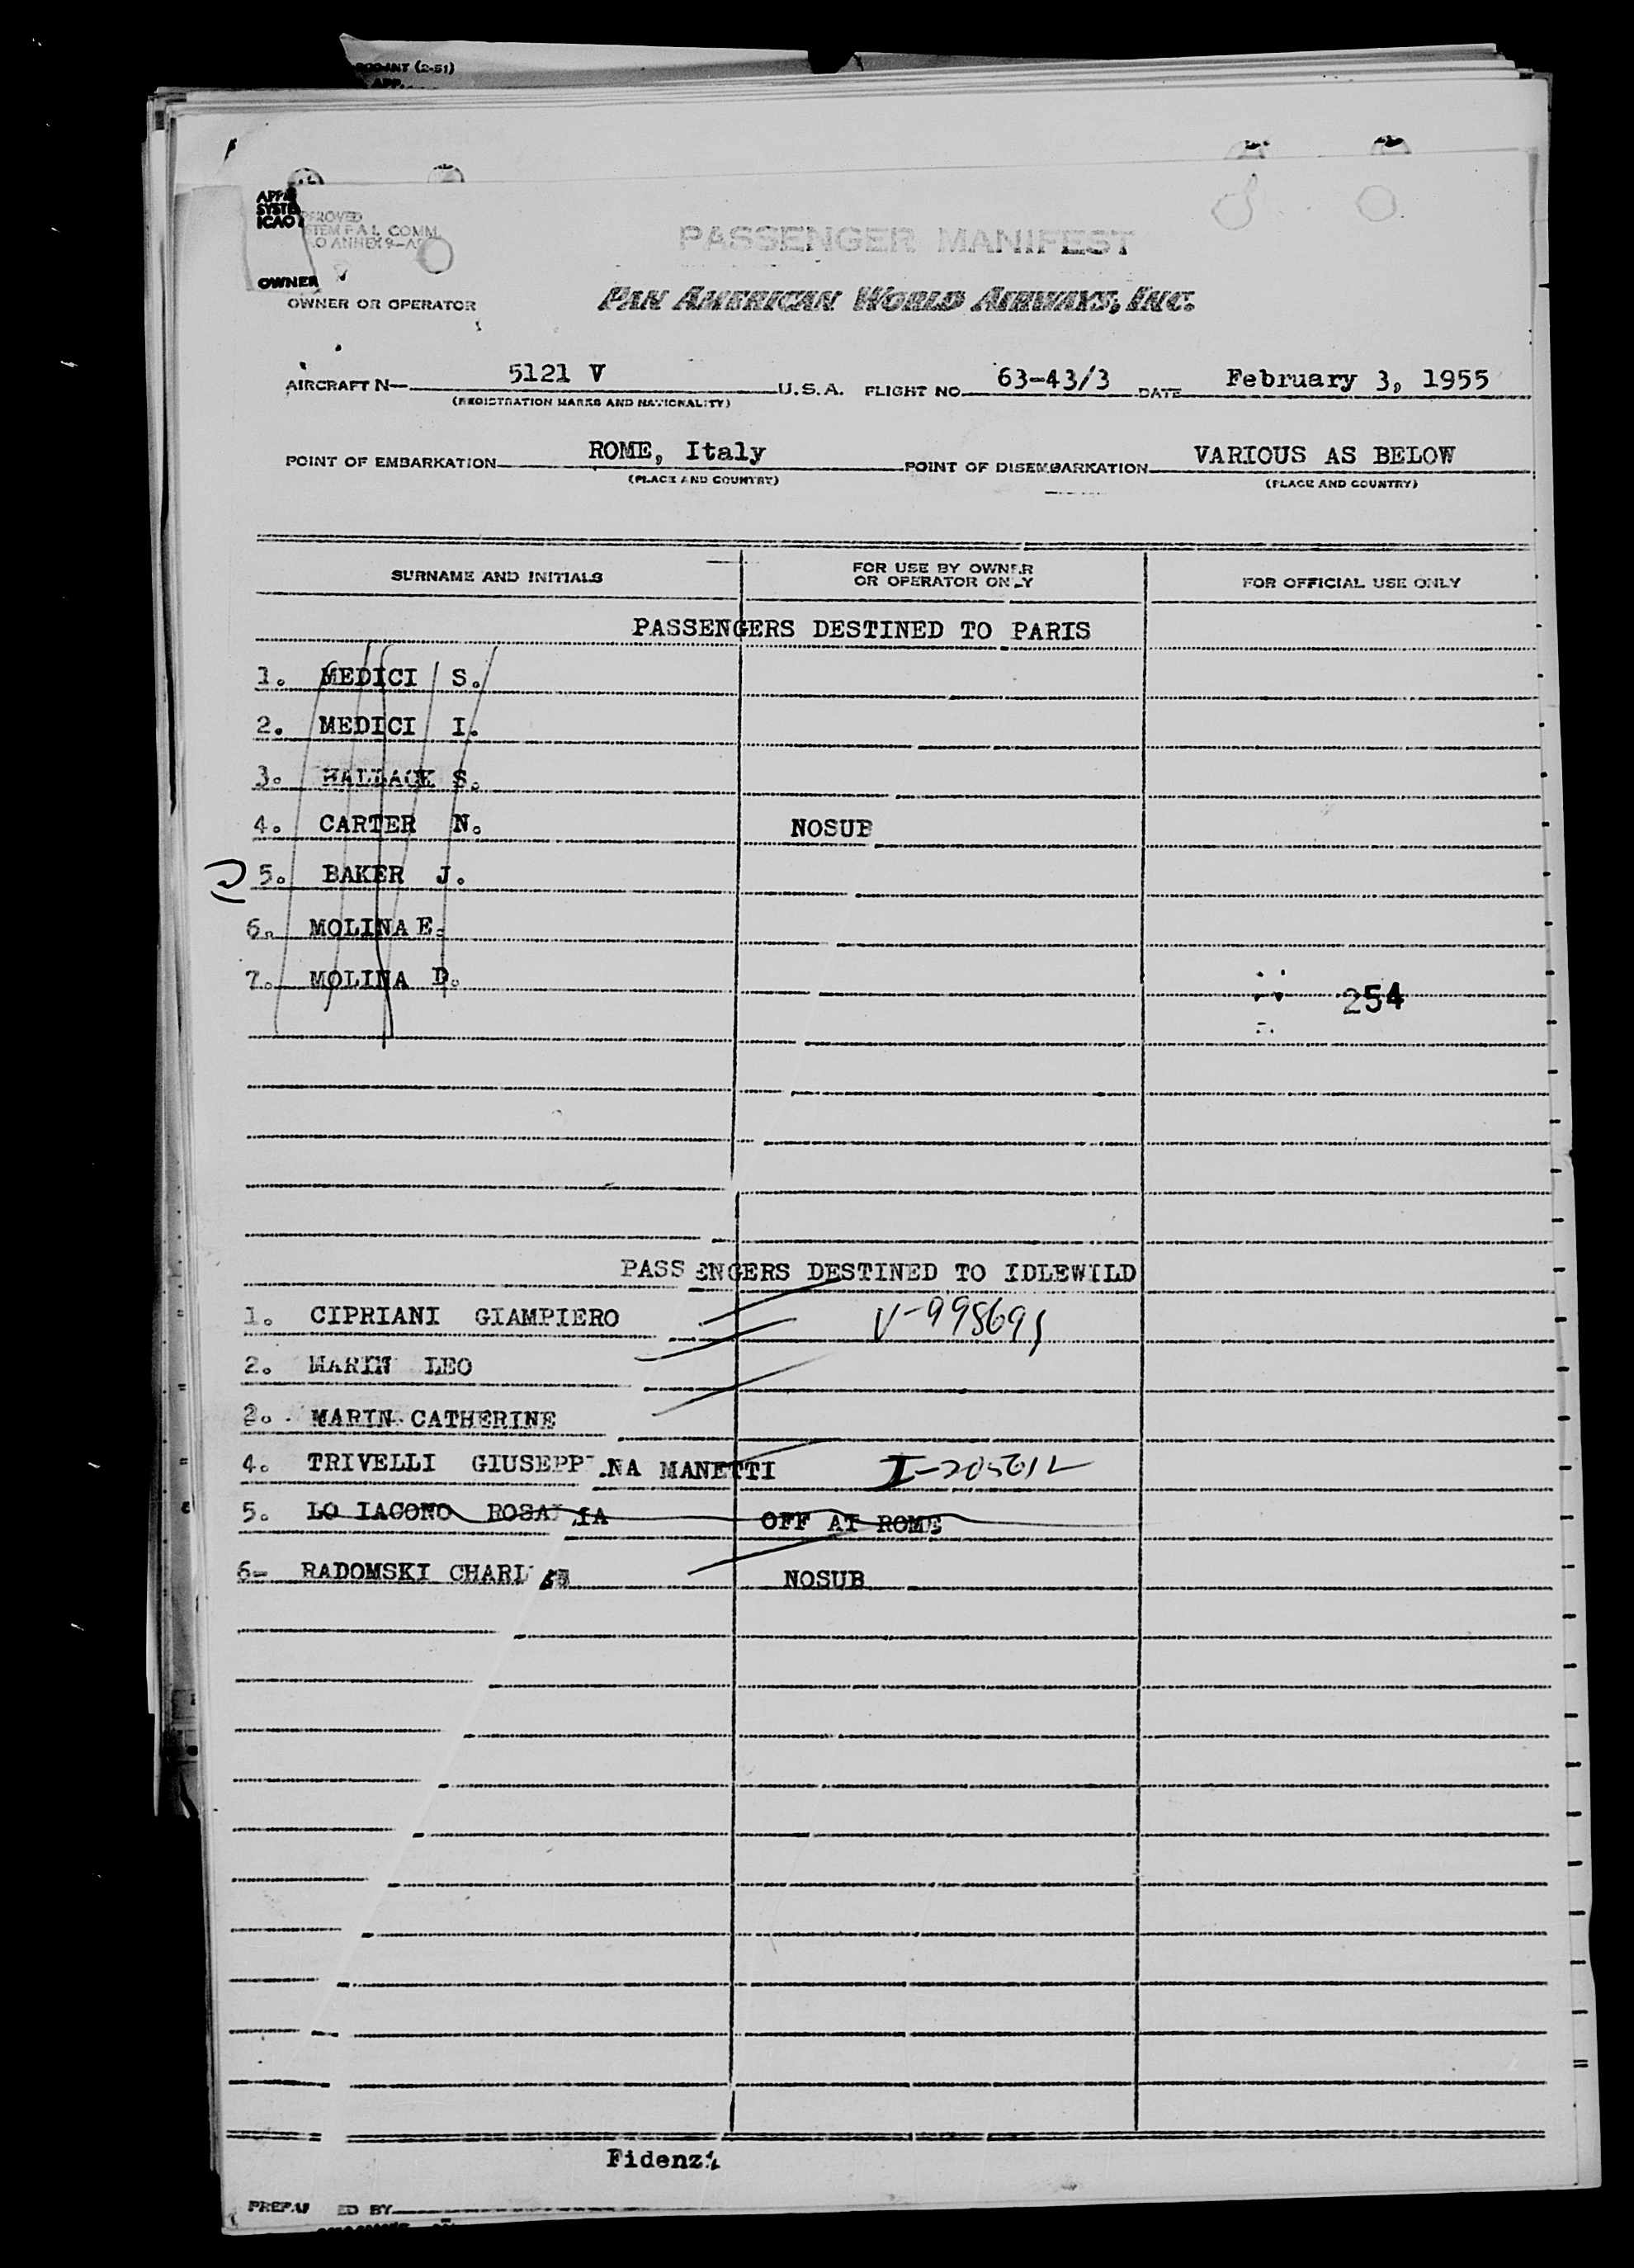 (2-51)
APP.
SYSTE
ICAO
PROVED
STEM F.A.L. COMM.
O ANNEX 9-
OWNER
OWNER OR OPERATOR
PASSENGER MANIFEST
PAN AMERICAN WORLD AIRWAYS, INC.
AIRCRAFT N— 5121 V U.S.A. FLIGHT NO. 63-43/3 DATE February 3, 1955
(REGISTRATION MARKS AND NATIONALITY)
POINT OF EMBARKATION ROME, Italy POINT OF DISEMBARKATION VARIOUS AS BELOW
(PLACE AND COUNTRY) (PLACE AND COUNTRY)
SURNAME AND INITIALS FOR USE BY OWNER OR OPERATOR ONLY FOR OFFICIAL USE ONLY
PASSENGERS DESTINED TO PARIS
1. MEDICI S.
2. MEDICI I.
3. WALLACK S.
4. CARTER N. NOSUB
5. BAKER J.
6. MOLINA E.
7. MOLINA D.
254
PASSENGERS DESTINED TO IDLEWILD
1. CIPRIANI GIAMPIERO
2. MARIN LEO
2. MARIN CATHERINE
4. TRIVELLI GIUSEPP.NA MANETTI
5. LO IACONO ROSALIA OFF AT ROME
6- RADOMSKI CHARLES NOSUB
Fidenzi
PREPA ED BY